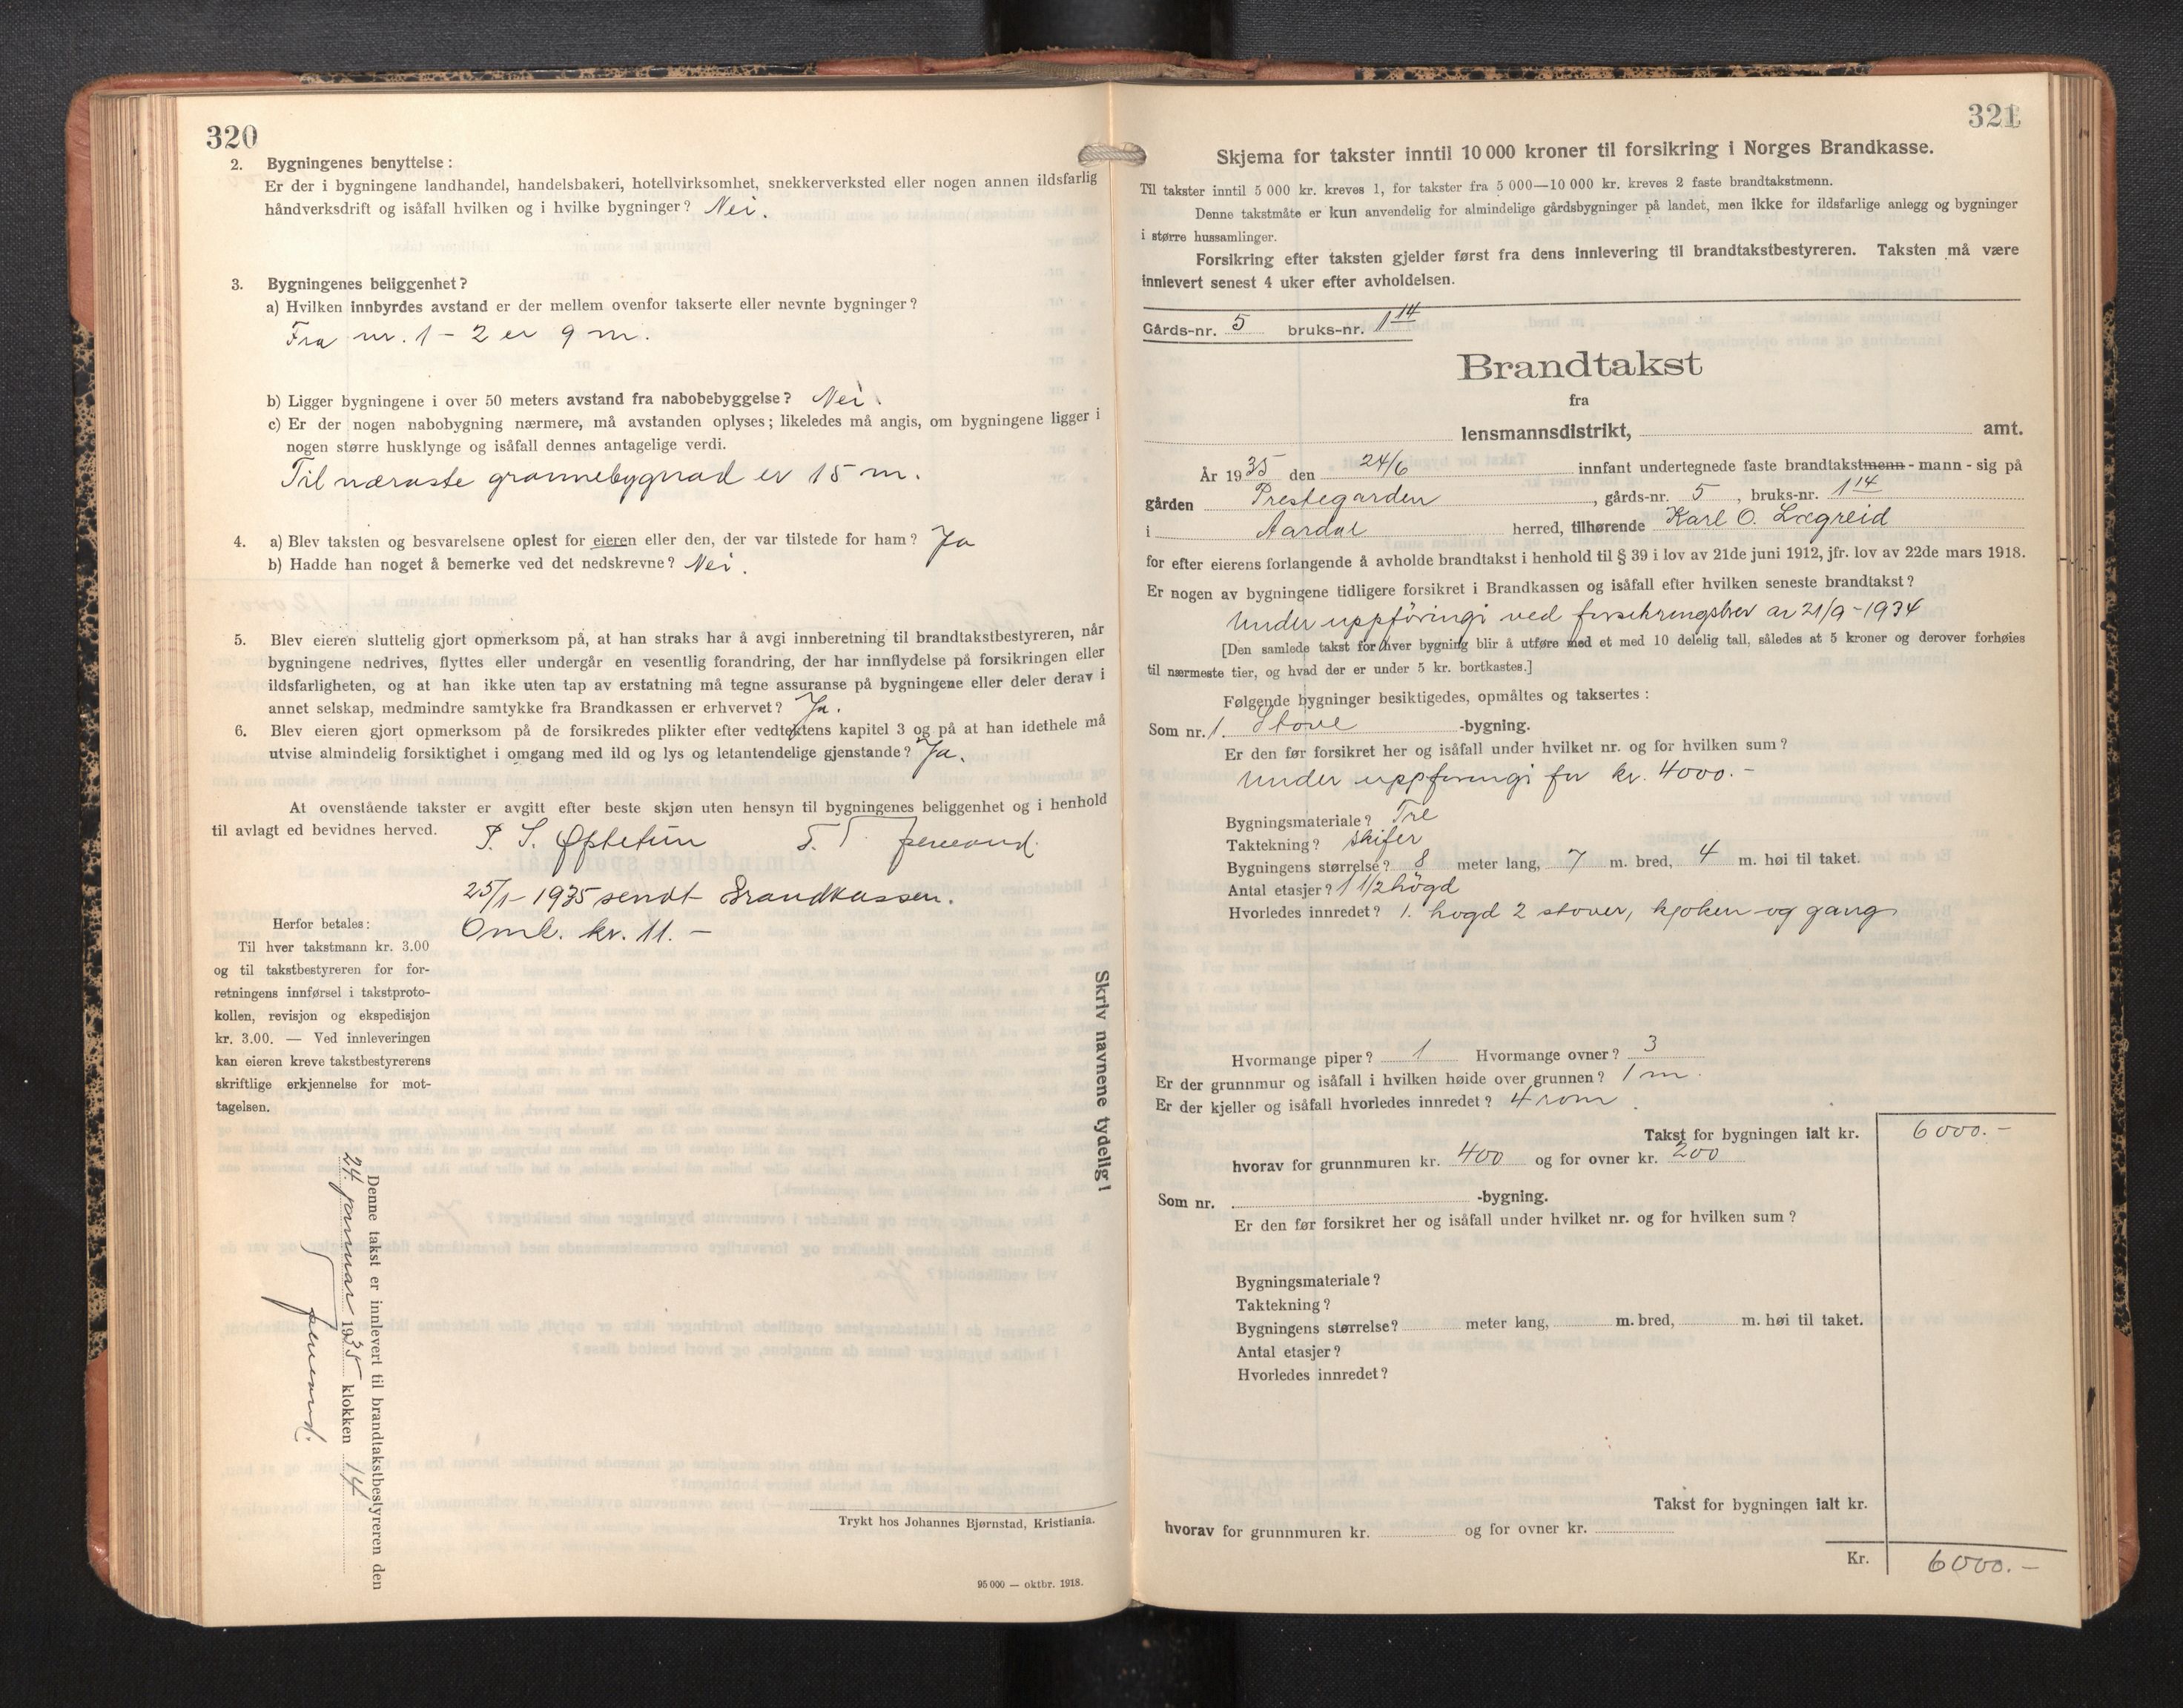 320
2. Bygningenes benyttelse:
Er der i bygningene landhandel, handelsbakeri, hotellvirksomhet, snekkerverksted eller nogen annen ildsfarlig
håndverksdrift og isåfall hvilken og i hvilke bygninger? Nei.
3. Bygningenes beliggenhet?
a) Hvilken innbyrdes avstand er der mellem ovenfor takserte eller nevnte bygninger?
Fra nr. 1 - 2 er 9 m.
b) Ligger bygningene i over 50 meters avstand fra nabobebyggelse? Nei.
c) Er der nogen nabobygning nærmere, må avstanden oplyses; likeledes må angis, om bygningene ligger i
nogen større husklynge og isåfall dennes antagelige verdi.
Til næraste grannebygnad er 15 m.
4. a) Blev taksten og besvarelsene oplest for eieren eller den, der var tilstede for ham? Ja
b) Hadde han noget å bemerke ved det nedskrevne? Nei.
5. Blev eieren sluttelig gjort opmerksom på, at han straks har å avgi innberetning til brandtakstbestyreren, når
bygningene nedrives, flyttes eller undergår en vesentlig forandring, der har innflydelse på forsikringen eller
ildsfarligheten, og at han ikke uten tap av erstatning må tegne assuranse på bygningene eller deler derav i
annet selskap, medmindre samtykke fra Brandkassen er erhvervet? Ja.
6. Blev eieren gjort opmerksom på de forsikredes plikter efter vedtektens kapitel 3 og på at han idethele må
utvise almindelig forsiktighet i omgang med ild og lys og letantendelige gjenstande? Ja.
At ovenstående takster er avgitt efter beste skjøn uten hensyn til bygningenes beliggenhet og i henhold
til avlagt ed bevidnes herved.
P. S. Øptetun
25/1 - 1935 sendt Brandkassen.
Omk. kr. 11.-
Herfor betales:
Til hver takstmann kr. 3.00
og til takstbestyreren for for-
retningens innførsel i takstproto-
kollen, revisjon og ekspedisjon
kr. 3.00. — Ved innleveringen
kan eieren kreve takstbestyrerens
skriftlige erkjennelse for mot-
tagelsen.
Skriv navnene tydelig!
Denne takst er innlevert til brandtakstbestyreren den
24. januar 1935 klokken 14
Trykt hos Johannes Bjørnstad, Kristiania.
95 000 — oktbr. 1918.
321
Skjema for takster inntil 10 000 kroner til forsikring i Norges Brandkasse.
Til takster inntil 5 000 kr. kreves 1, for takster fra 5 000—10 000 kr. kreves 2 faste brandtakstmenn.
Denne takstmåte er kun anvendelig for almindelige gårdsbygninger på landet, men ikke for ildsfarlige anlegg og bygninger
i større hussamlinger.
Forsikring efter taksten gjelder først fra dens innlevering til brandtakstbestyreren. Taksten må være
innlevert senest 4 uker efter avholdelsen.
Gårds-nr. 5 bruks-nr. 1 14
Brandtakst
fra
lensmannsdistrikt, amt.
År 1935 den 24/6 innfant undertegnede faste brandtakstmenn - mann - sig på
gården Prestegarden, gårds-nr. 5, bruks-nr. 1 14
i Aardal herred, tilhørende Karl O. Lægreid
for efter eierens forlangende å avholde brandtakst i henhold til § 39 i lov av 21de juni 1912, jfr. lov av 22de mars 1918.
Er nogen av bygningene tidligere forsikret i Brandkassen og isåfall efter hvilken seneste brandtakst?
Under uppföringi ved forsikringsbrev av 21/9 - 1934
[Den samlede takst for hver bygning blir å utføre med et med 10 delelig tall, således at 5 kroner og derover forhøies
til nærmeste tier, og hvad der er under 5 kr. bortkastes.]
Følgende bygninger besiktigedes, opmåltes og taksertes:
Som nr. 1. Stove -bygning.
Er den før forsikret her og isåfall under hvilket nr. og for hvilken sum?
Under uppføringi for kr. 4000.-
Bygningsmateriale? Tre
Taktekning? Skifer
Bygningens størrelse? 8 meter lang, 7 m. bred, 4 m. høi til taket.
Antal etasjer? 1 1/2 högd
Hvorledes innredet? 1. hogd 2 stover, kjøken og gang
Hvormange piper? 1 Hvormange ovner? 3
Er der grunnmur og isåfall i hvilken høide over grunnen? 1 m.
Er der kjeller og isåfall hvorledes innredet? 4 rom
Takst for bygningen ialt kr. 6000.-
hvorav for grunnmuren kr. 400 og for ovner kr. 200
Som nr. -bygning.
Er den før forsikret her og isåfall under hvilket nr. og for hvilken sum?
Bygningsmateriale?
Taktekning?
Bygningens størrelse? meter lang, m. bred, m. høi til taket.
Antal etasjer?
Hvorledes innredet?
Takst for bygningen ialt kr.
hvorav for grunnmuren kr. og for ovner kr.
Kr. 6000.-